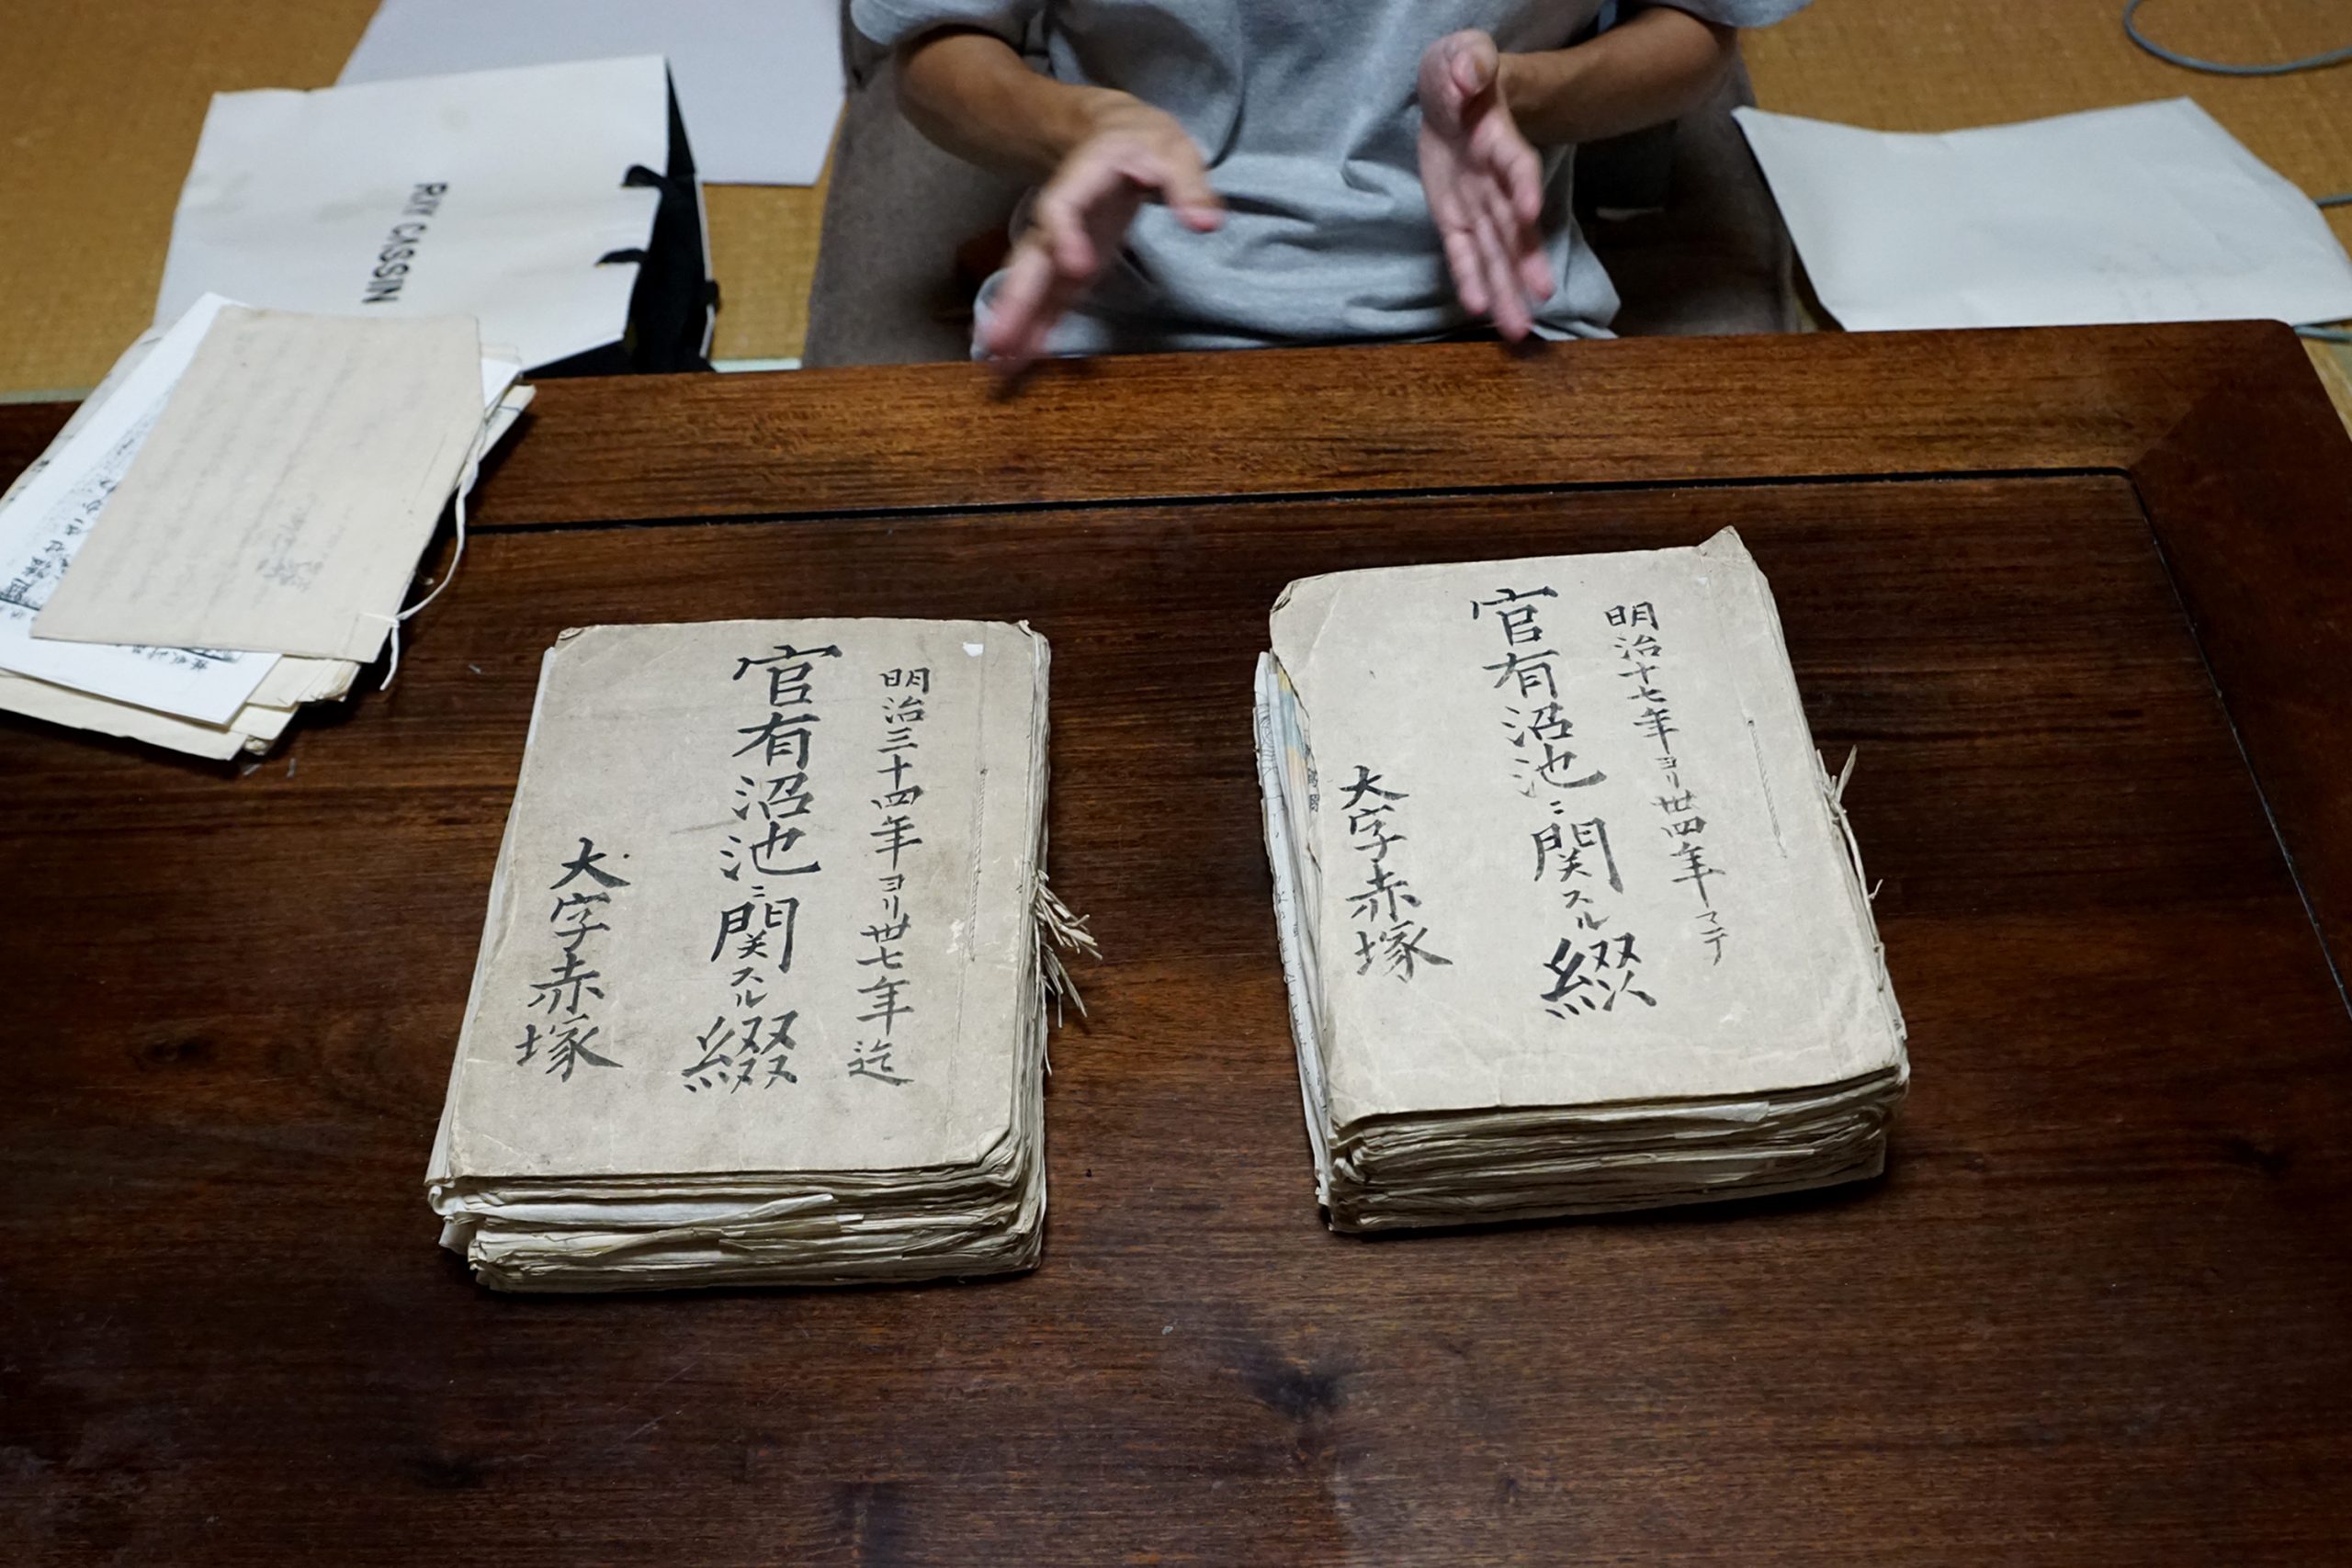 RAY CASSIN
明治十七年ヨリ丗四年マテ
官有沼池ニ関スル綴
大字赤塚
明治三十四年ヨリ丗七年迄
官有沼池ニ関スル綴
大字赤塚